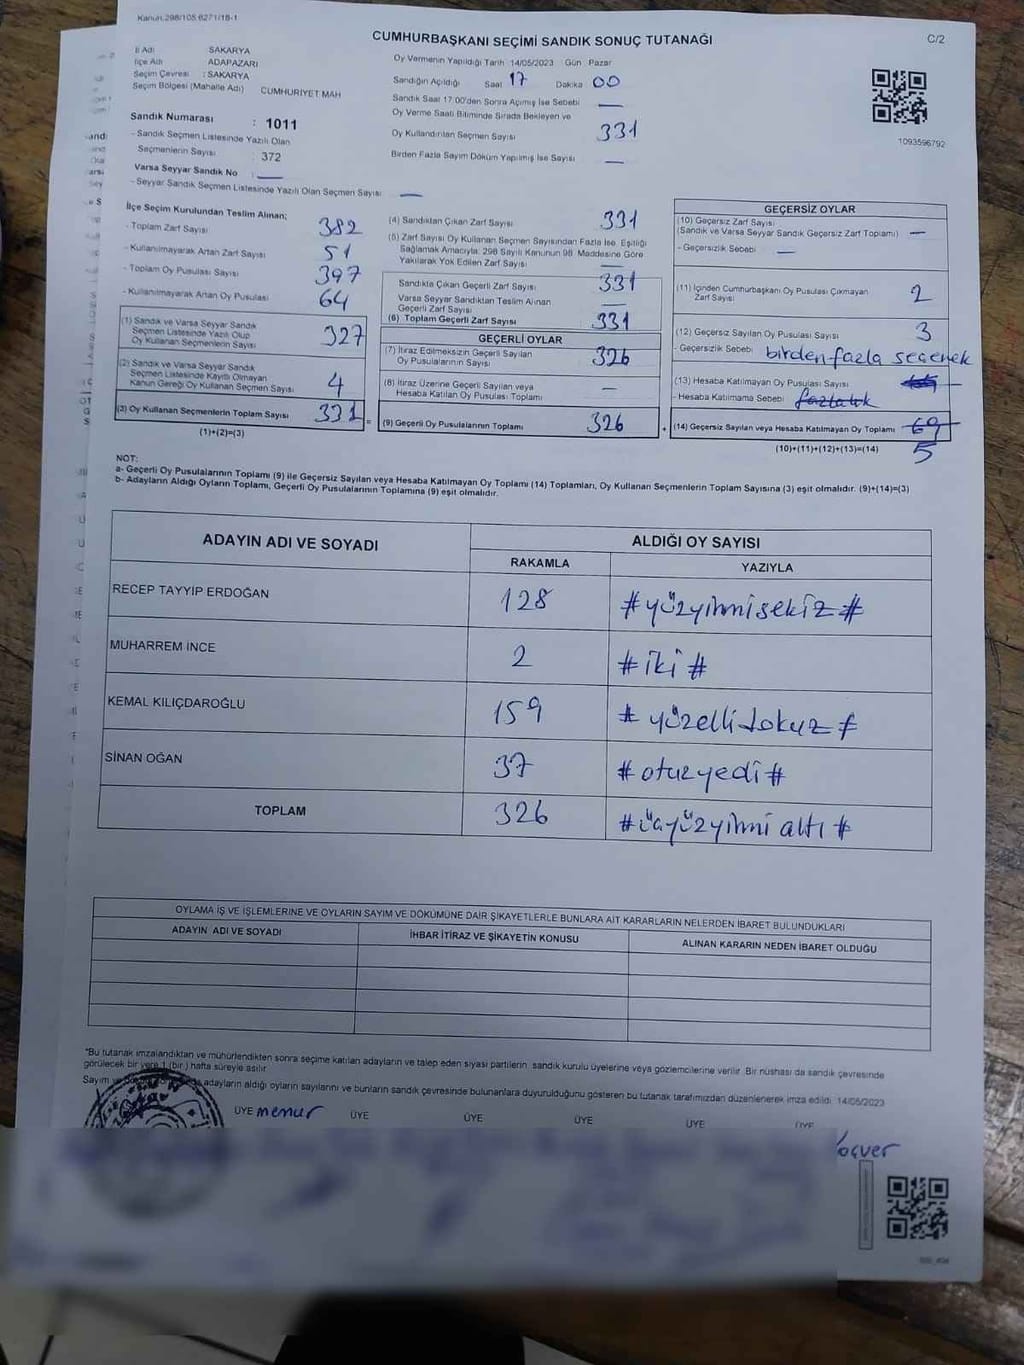 Kanun.298/105.6271/18-1
CUMHURBAŞKANI SEÇİMİ SANDIK SONUÇ TUTANAĞI
C/2
İl Adı SAKARYA
İlçe Adı ADAPAZARI
Seçim Çevresi : SAKARYA
Seçim Bölgesi (Mahalle Adı) CUMHURİYET MAH
Sandık Numarası : 1011
- Sandık Seçmen Listesinde Yazılı Olan
Seçmenlerin Sayısı : 372
Varsa Seyyar Sandık No —
- Seyyar Sandık Seçmen Listesinde Yazılı Olan Seçmen Sayısı —
Oy Vermenin Yapıldığı Tarih 14/05/2023 Gün Pazar
Sandığın Açıldığı Saat 17 Dakika 00
Sandık Saat 17.00'den Sonra Açımış İse Sebebi —
Oy Verme Saati Bitiminde Sırada Bekleyen ve
Oy Kullandırılan Seçmen Sayısı 331
Birden Fazla Sayım Döküm Yapılmış İse Sayısı —
1093596792
İlçe Seçim Kurulundan Teslim Alınan;
- Toplam Zarf Sayısı 382
- Kullanılmayarak Artan Zarf Sayısı 51
- Toplam Oy Pusulası Sayısı 397
- Kullanılmayarak Artan Oy Pusulası 64
(1) Sandık ve Varsa Seyyar Sandık
Seçmen Listesinde Yazılı Olup
Oy Kullanan Seçmenlerin Sayısı 327
(2) Sandık ve Varsa Seyyar Sandık
Seçmen Listesinde Kayıtlı Olmayan
Kanun Gereği Oy Kullanan Seçmen Sayısı 4
(3) Oy Kullanan Seçmenlerin Toplam Sayısı 331
(1)+(2)=(3)
(4) Sandıktan Çıkan Zarf Sayısı 331
(5) Zarf Sayısı Oy Kullanan Seçmen Sayısından Fazla İse, Eşitliği
Sağlamak Amacıyla; 298 Sayılı Kanunun 98. Maddesine Göre
Yakılarak Yok Edilen Zarf Sayısı —
Sandıkta Çıkan Geçerli Zarf Sayısı 331
Varsa Seyyar Sandıktan Teslim Alınan
Geçerli Zarf Sayısı —
(6) Toplam Geçerli Zarf Sayısı 331
GEÇERLİ OYLAR
(7) İtiraz Edilmeksizin Geçerli Sayılan
Oy Pusulalarının Sayısı 326
(8) İtiraz Üzerine Geçerli Sayılan veya
Hesaba Katılan Oy Pusulası Toplamı —
= (9) Geçerli Oy Pusulalarının Toplamı 326 +
GEÇERSİZ OYLAR
(10) Geçersiz Zarf Sayısı
(Sandık ve Varsa Seyyar Sandık Geçersiz Zarf Toplamı) —
- Geçersizlik Sebebi —
(11) İçinden Cumhurbaşkanı Oy Pusulası Çıkmayan
Zarf Sayısı 2
(12) Geçersiz Sayılan Oy Pusulası Sayısı 3
- Geçersizlik Sebebi birden fazla seçenek
(13) Hesaba Katılmayan Oy Pusulası Sayısı
- Hesaba Katılmama Sebebi fazlalık
(14) Geçersiz Sayılan veya Hesaba Katılmayan Oy Toplamı 69
(10)+(11)+(12)+(13)=(14) 5
NOT:
a- Geçerli Oy Pusulalarının Toplamı (9) ile Geçersiz Sayılan veya Hesaba Katılmayan Oy Toplamı (14) Toplamları, Oy Kullanan Seçmenlerin Toplam Sayısına (3) eşit olmalıdır. (9)+(14)=(3)
b- Adayların Aldığı Oyların Toplamı, Geçerli Oy Pusulalarının Toplamına (9) eşit olmalıdır.
ADAYIN ADI VE SOYADI ALDIĞI OY SAYISI
RAKAMLA YAZIYLA
RECEP TAYYİP ERDOĞAN 128 #yüzyirmisekiz#
MUHARREM İNCE 2 #iki#
KEMAL KILIÇDAROĞLU 159 #yüzellidokuz#
SİNAN OĞAN 37 #otuzyedi#
TOPLAM 326 #üçyüzyirmi altı#
OYLAMA İŞ VE İŞLEMLERİNE VE OYLARIN SAYIM VE DÖKÜMÜNE DAİR ŞİKAYETLERLE BUNLARA AİT KARARLARIN NELERDEN İBARET BULUNDUKLARI
ADAYIN ADI VE SOYADI İHBAR İTİRAZ VE ŞİKAYETİN KONUSU ALINAN KARARIN NEDEN İBARET OLDUĞU
*Bu tutanak imzalandıktan ve mühürlendikten sonra seçime katılan adayların ve talep eden siyasi partilerin sandık kurulu üyelerine veya gözlemcilerine verilir. Bir nüshası da sandık çevresinde
görülecek bir yere 1 (bir) hafta süreyle asılır.
Sayım adayların aldığı oyların sayılarını ve bunların sandık çevresinde bulunanlara duyurulduğunu gösteren bu tutanak tarafımızdan düzenlenerek imza edildi. 14/05/2023
ÜYE memur ÜYE ÜYE ÜYE ÜYE ÜYE